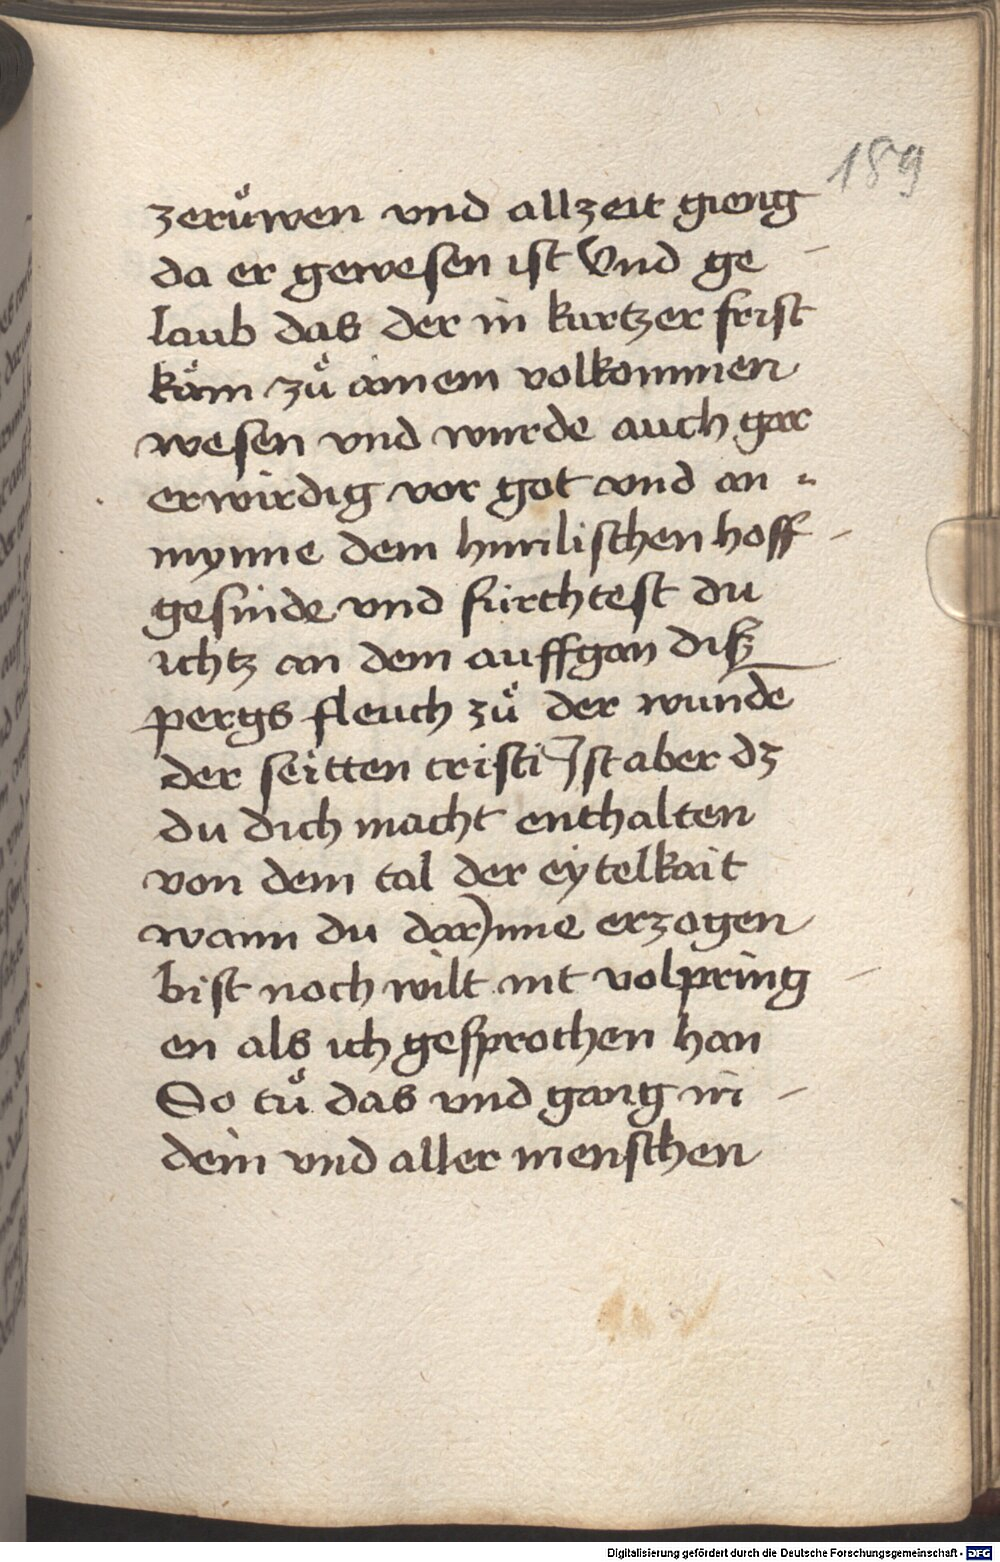 189
zerůwen vnd allzeit gieng
da er gewesen ist Vnd ge
laub das der in kurtzer frist
käm zů ainem volkommen
wesen vnd wurde auch gar
erwirdig vor got vnd an
mynne dem himlischen hoff
gesinde vnd fürchtest du
ichtz an dem auffgan diß
pergs fleuch zů der wunde
der seitten cristi Ist aber dz
du dich macht enthalten
von dem tal der eytelkait
wann du dar)inne erzogen
bist noch wilt nit volpring
en als ich gesprochen han
So tů das vnd gang in
dein vnd aller menschen
Digitalisierung gefördert durch die Deutsche Forschungsgemeinschaft - DFG